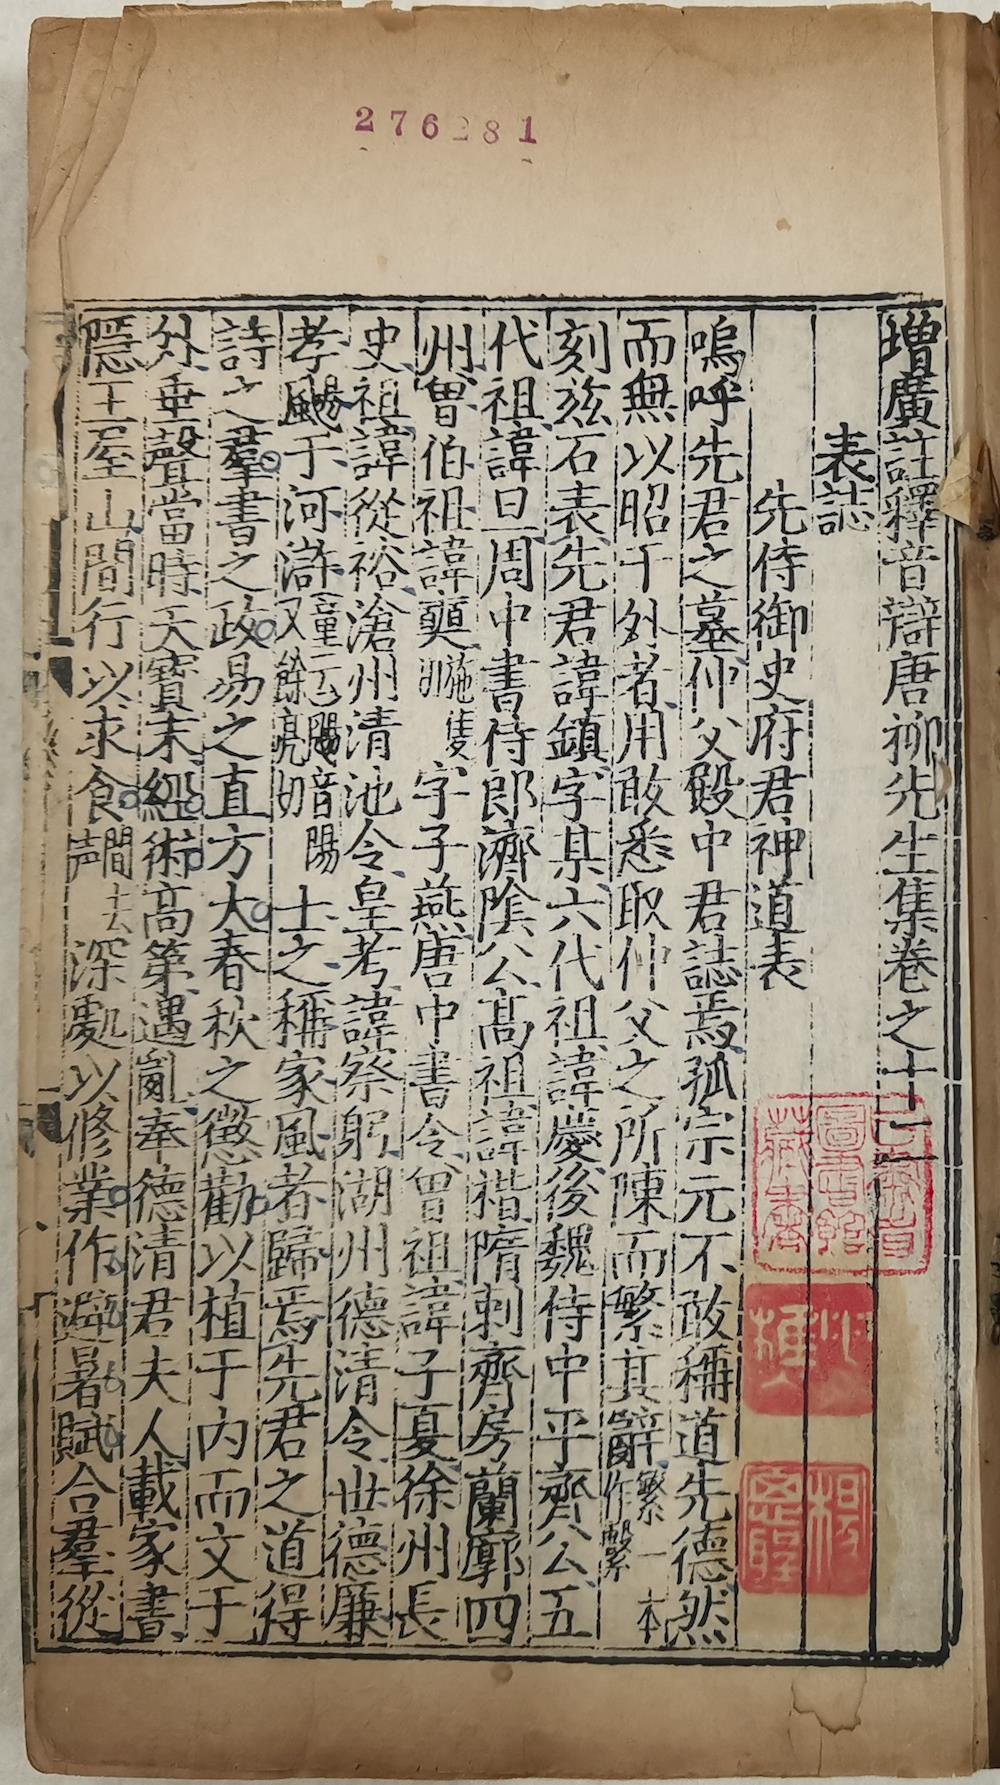 276281
增廣註釋音辯唐柳先生集卷之十二
表誌
先侍御史府君神道表
嗚呼先君之墓仲父殿中君誌焉孤宗元不敢稱道先德然
而無以昭于外者用敢悉取仲父之所陳而繁其辭繁一本作繄
刻玆石表先君諱鎮字某六代祖諱慶後魏侍中平齊公五
代祖諱旦周中書侍郎濟隂公高祖諱楷隋刺齊房蘭廓四
州曾伯祖諱奭施隻切字子燕唐中書令曾祖諱子夏徐州長
史祖諱從裕滄州清池令皇考諱察躬湖州德清令世德廉
孝颺于河滸童云颺音陽又餘亮切士之稱家風者歸焉先君之道得
詩之羣書之政易之直方大春秋之懲勸以植于内而文于
外垂聲當時天寶末經術高第遇亂奉德清君夫人載家書
隱王屋山間行以求食間去声深處以修業作避暑賦合羣從